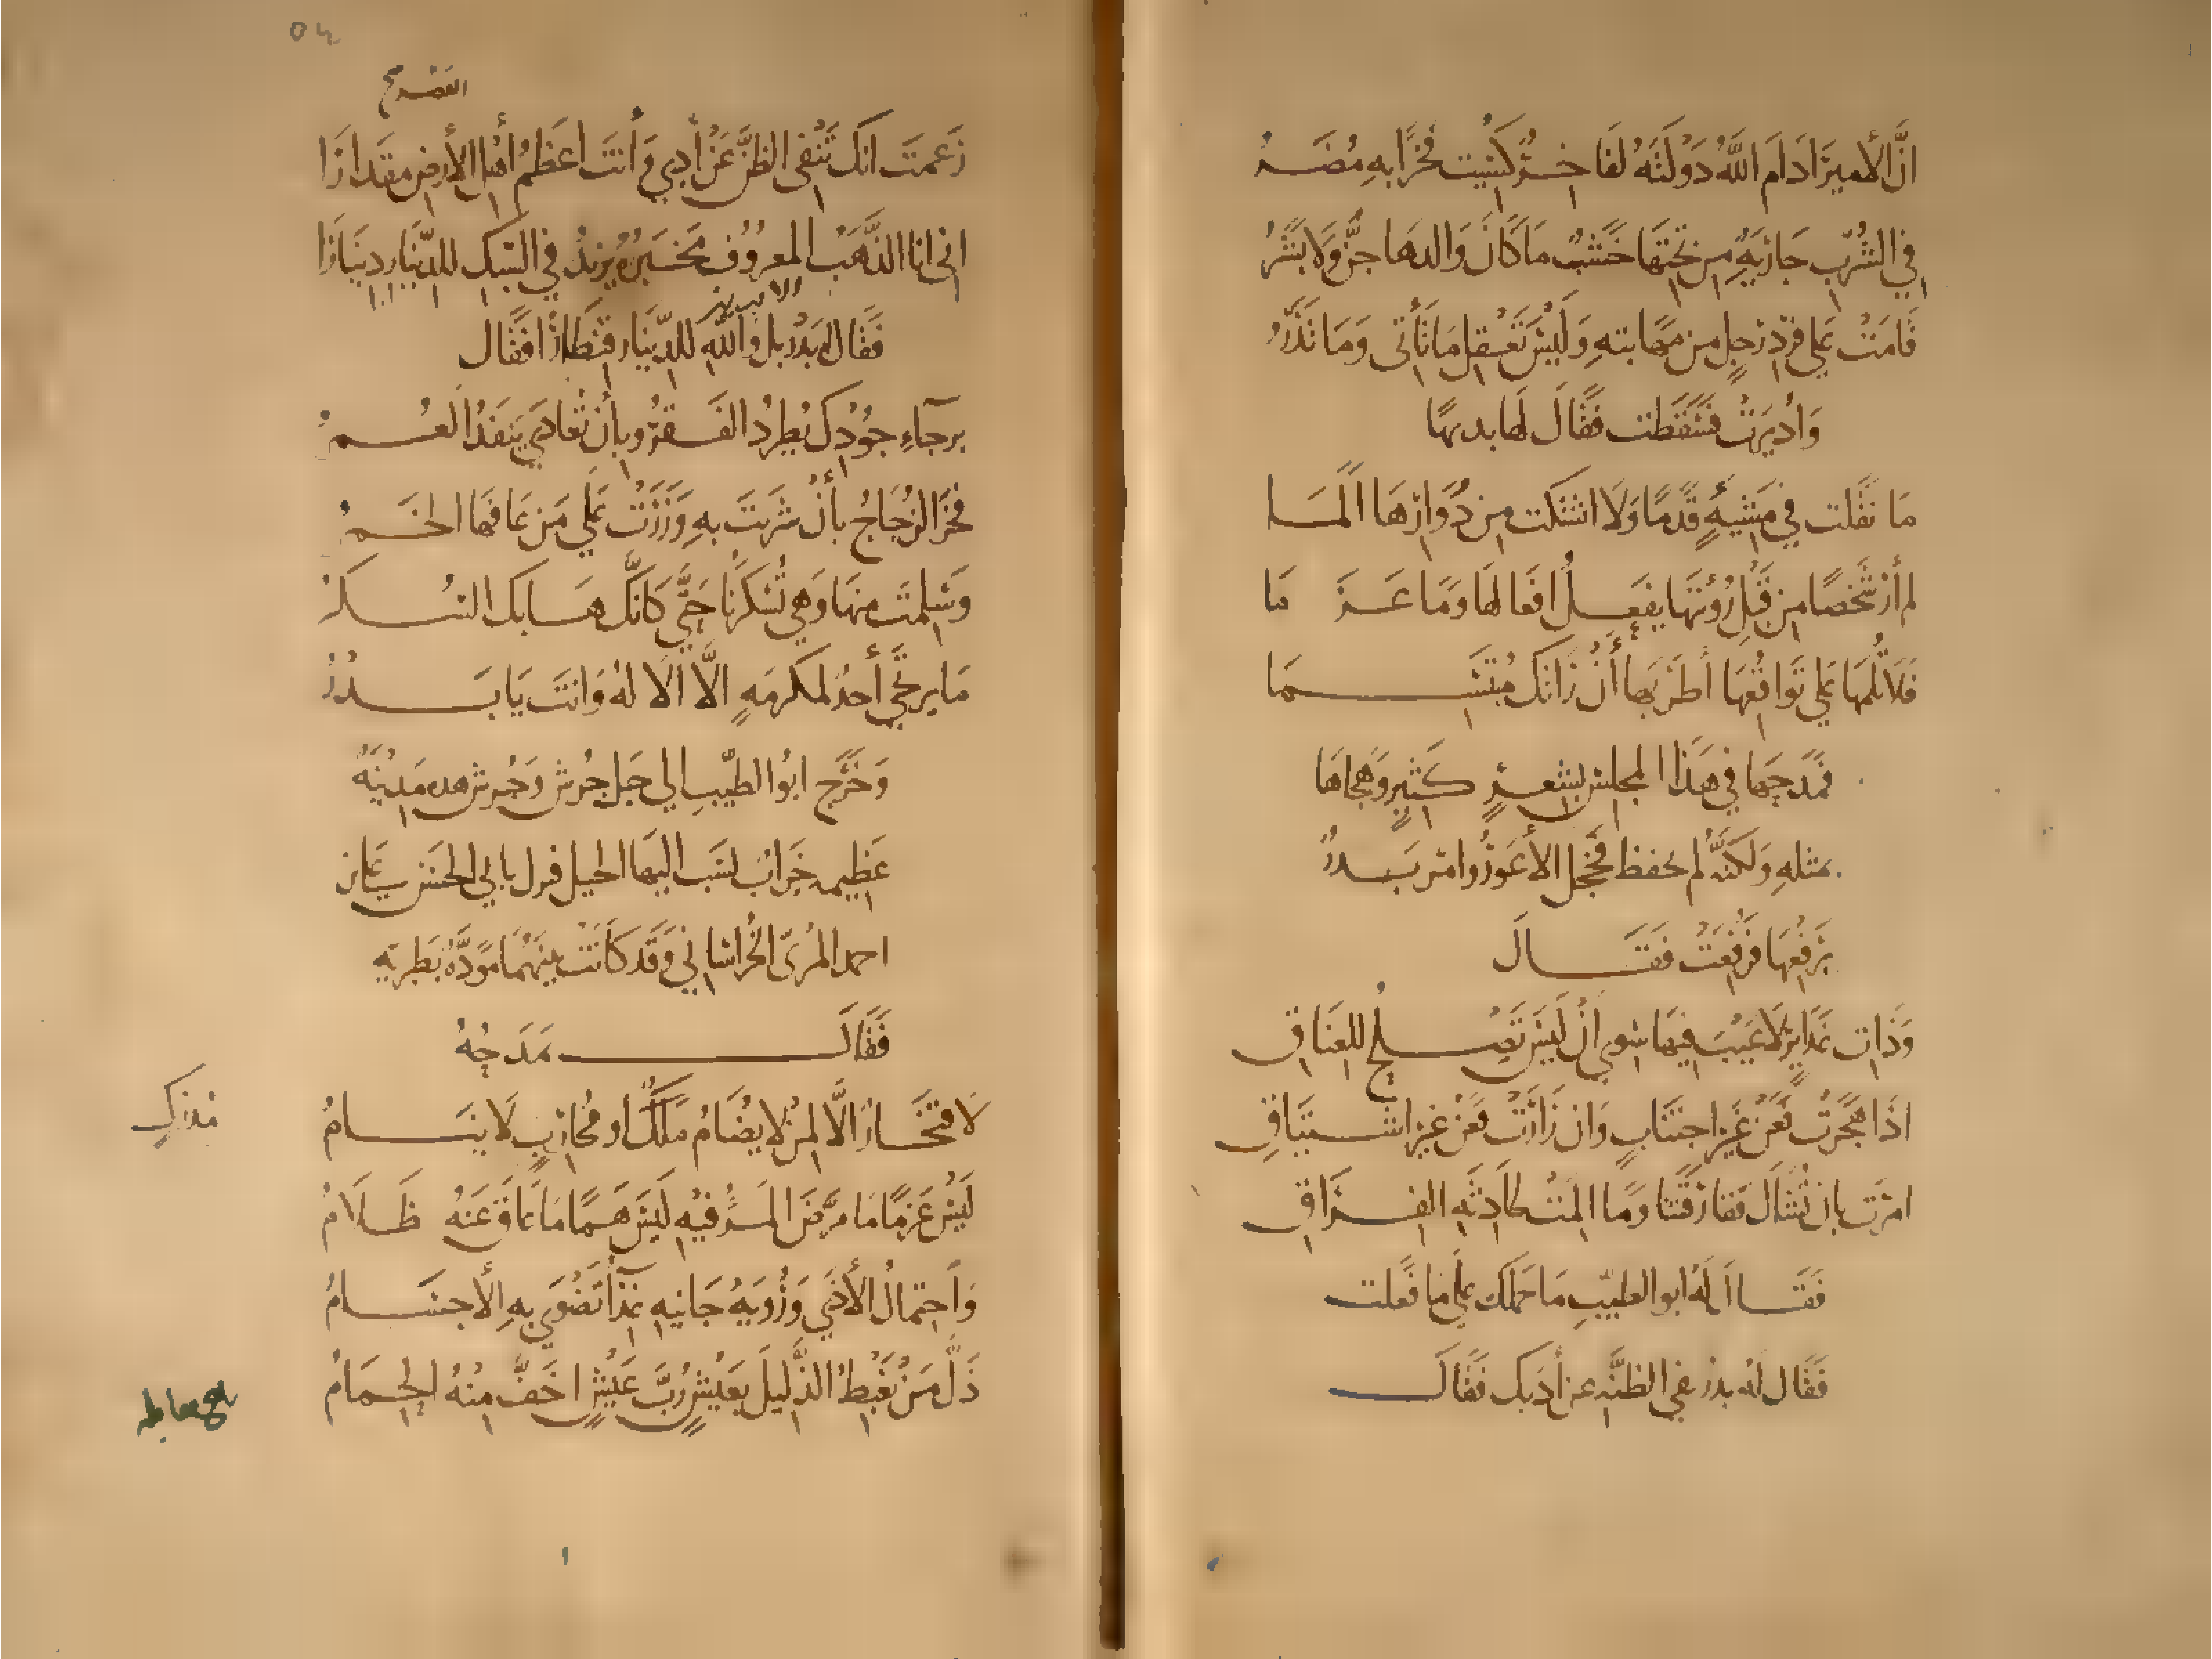 انَّ الأميرَ ادَامَ اللهُ دَوْلَتَهُ لفَاخِرٌ كُسِيَت فخرًا بهِ مُضَرُ
في الشَّرْبِ جَاريَةٌ مِن تَحْتِهَا خَشَبٌ مَا كَانَ وَالدهَا جنٌّ وَلَا بَشَرُ
قَامَتْ عَلى فرْدِ رجلٍ من مهَابتهِ وَليْسَ تَعْقِل مَا تَأْتى وَمَا تَذَرُ
وَادُيرَتْ فسَقَطت فقَالَ لهَا بديهًا
مَا نقَلت في مَشِيئَةٍ قَدَمًا وَلَا اشتكت مِن دُوَارِهَا أَلَمَا
لم أرَ شَخصًا مِن قَبْلِ رُؤيَتهَا يفعَلُ افعَالهَا وَمَا عَزَمَا
فلَا تَلُمهَا عَلى تَوَاقُعِهَا أطرَبهَا أَنْ رَاتكَ مُبْتَسِمَا
فمَدحَهَا في هَذَا المجلس بشعرٍ كَثيرٍ وَهجَاهَا
بمثلهِ وَلكنَّهُ لم يحفظ فخجل الأعوَرُ وامرَ بَدرٌ
برَفعِهَا فرُفِعَتْ فقَالَ
وَذَاتِ غَدَايِرٍ لَا عَيْبَ فيهَا سوى أَنْ لَيْسَ تَصْلُحُ للعِنَاقِ
اذَا هَجَرَتْ فَعَنْ غَيرِ اجتنَابٍ وَان زَارَتْ فعَنْ غيرِ اشتيَاقِ
امَرْتَ بان تُشَالَ ففَارَقَتنا وَمَا الِمَتْ لحَادثَةِ الفِرَاقِ
فقَال لَهُ ابو الطيّبِ مَا حَمَلكَ عَلى مَا فَعلت
فقَال لهُ بدرٌ نفي الظنّهِ عن أدَبك فقَالَ
٥٤
زَعمتَ انكَ تَنْفى الظَنَّ عَنْ أَدبي وَأَنتَ اعَظمُ أهل الأرضِ مقدَارَا
انى انا الذَّهَبُ المعرُوف مَخبَرُهُ يزيدُ في السَّبكِ للدِّينَارِ دِينَارَا
الامير
فقَال لهُ بَدْرٌ بل وَاللهِ للدّينَارِ قنطَارًا فقَال
برجَاءِ جوُدِكَ يُطرَدُ الفَقرُ وبأَن تُعَادَى يَنفَدُ العُمْرُ
فخرَ الزُجَاجُ بأنْ شَربْتَ بهِ وَزَرَتْ عَلى مَن عَافهَا الخَمْرُ
وَسَلِمتَ منهَا وَهيَ تُسْكرُنَا حَتَّى كَانَّكَ هَابَكَ السُّكْرُ
مَا يرتجَى أَحدٌ لمكرمَةٍ الَّا الَالَاهُ وَانتَ يَا بَدْرُ
وَخَرَجَ ابوُ الطيّبِ الي جَبَل جُرَش وَجُرَش هده مَديْنَةٌ
عَظيمه خَرَابٌ نسَب اليهَا الجبل فنزل بابي الحسَن علي بن
احمد المُرّى الخُراسَانيّ وَقد كَانَتْ بينَهُمَا مَودَّةٌ بطَبريّه
فقَالَ مَدَحهُ
لَا فتخَارٌ الَّا لِمَنْ لا يُضَامُ مدْركٍ او محَاربٍ لَا ينَامُ
مُدركٍ
لَيسَ عَزمًا مَا مَرَّضَ المَرْءُ فيهِ لَيسَ هَمًّا مَا عَاقَ عَنهُ ظَلَامُ
وَاحتمَالُ الأذَى وَرُؤيَةُ جَانيهِ غذَآءٌ تَضْوَى بهِ الأَجسَامُ
ذَلَّ مَنْ يَغْبِطُ الذَّليلَ بعَيْشٍ رُبَّ عَيْشٍ اخَفُّ مِنْهُ الحِمَامُ